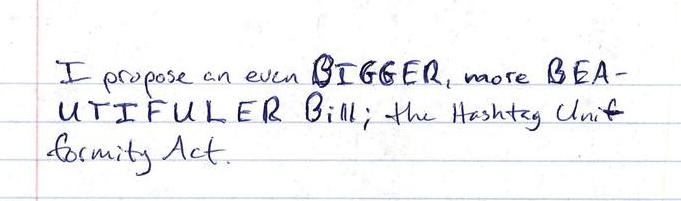 I propose an even BIGGER, more BEA-
UTIFULER Bill; the Hashtag Unif
formity Act.